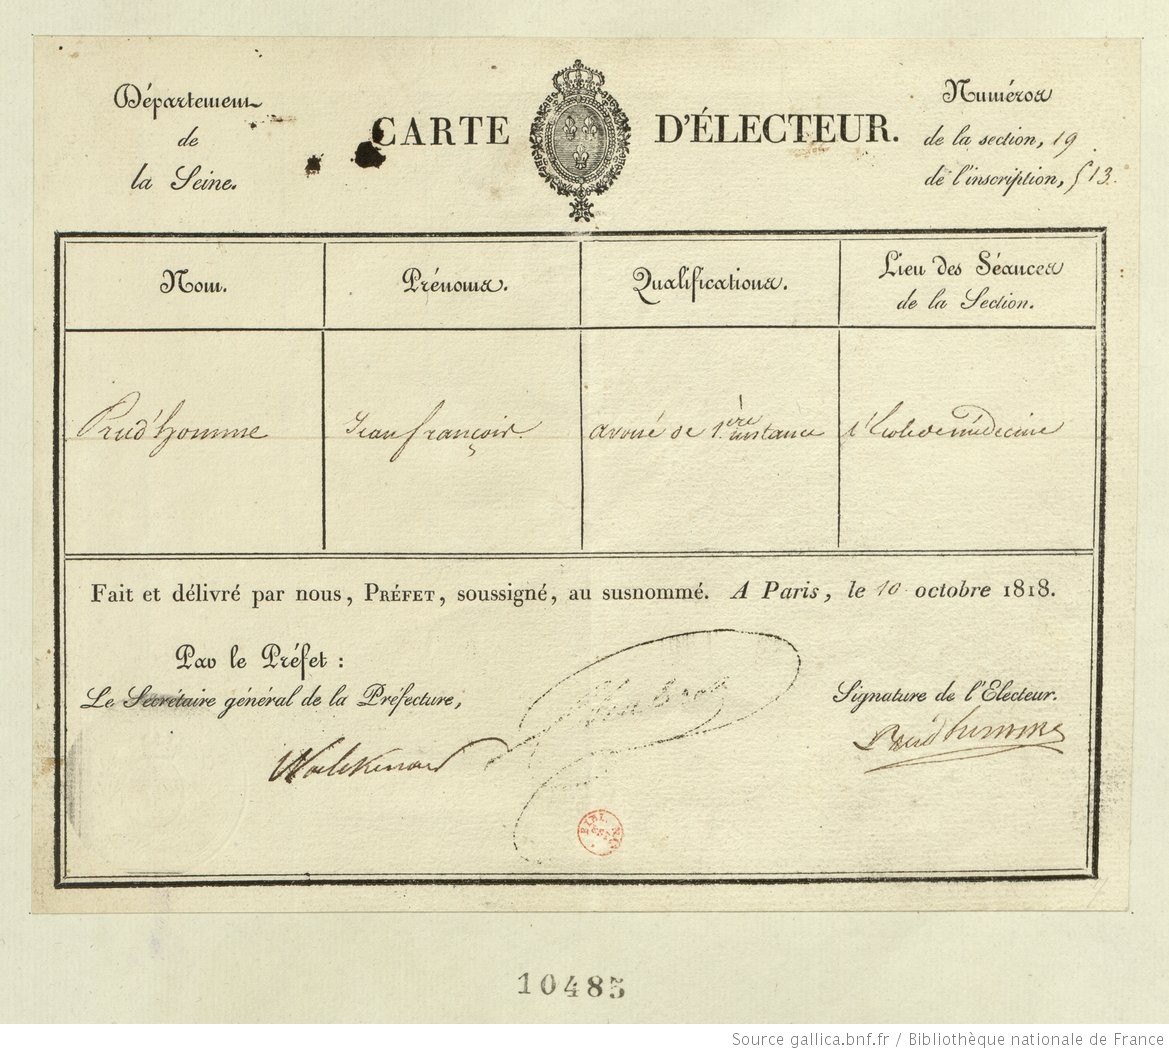 Département
de
la Seine.
CARTE D'ÉLECTEUR.
Numéros
de la section, 19
de l'inscription, 513.
Nom.
Prénoms.
Qualifications.
Lieu des Séances
de la Section.
Prud'homme
Jean françois.
avoué de 1.ère instance
l'Ecole de médecine
Fait et délivré par nous, PRÉFET, soussigné, au susnommé. A Paris, le 10 octobre 1818.
Par le Préfet :
Le Secrétaire général de la Préfecture,
Signature de l'Electeur.
Walckenaer
Prudhomme
10485
Source gallica.bnf.fr / Bibliothèque nationale de France